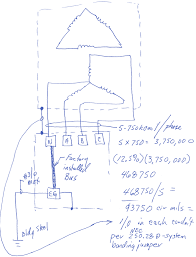 N A B C
5-750kcmil/phase
5 x 750 = 3,750,000
(12.5%)(3,750,000)
468750
Factory
installed
Bus
468750/5 =
93750 cir mils =
EG
#3/0
Bldg Steel
1/0 in each conduit
per NEC 250.28D system
bonding jumper